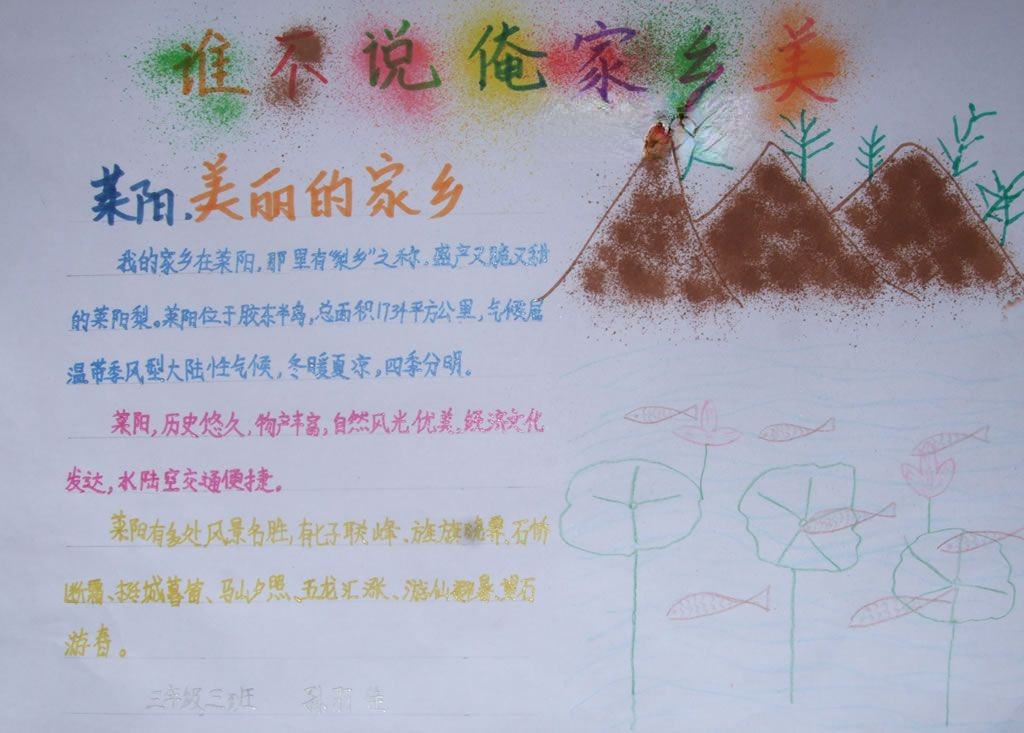 谁不说俺家乡美
莱阳.美丽的家乡
我的家乡在莱阳,那里有“梨乡”之称。盛产又脆又甜
的莱阳梨。莱阳位于胶东半岛,总面积1734平方公里,气候属
温带季风型大陆性气候,冬暖夏凉,四季分明。
莱阳,历史悠久,物产丰富,自然风光优美,经济文化
发达,水陆空交通便捷。
莱阳有多处风景名胜,有七子联峰、旌旗晚翠、石桥
断霞、挺城暮笛、马山夕照、五龙汇涨、游仙
游春。
三年级三班